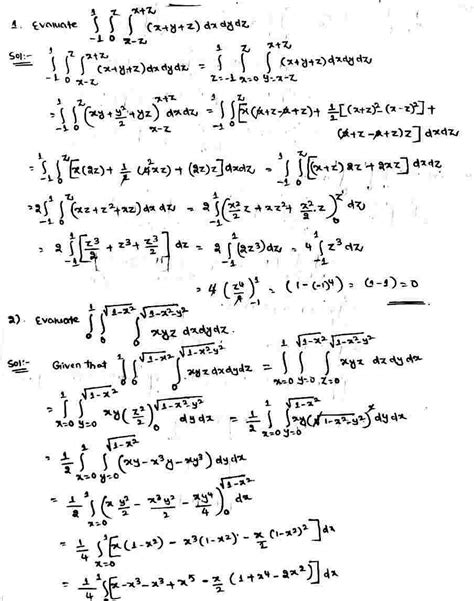 1. Evaluate ∫_{-1}^{1} ∫_{0}^{z} ∫_{x-z}^{x+z} (x+y+z) dx dy dz
Sol:- ∫_{-1}^{1} ∫_{0}^{z} ∫_{x-z}^{x+z} (x+y+z) dx dy dz = ∫_{z=-1}^{1} ∫_{x=0}^{z} ∫_{y=x-z}^{x+z} (x+y+z) dx dy dz
= ∫_{-1}^{1} ∫_{0}^{z} (xy + y²/2 + yz)_{x-z}^{x+z} dx dz = ∫_{-1}^{1} ∫_{0}^{z} [x(x+z-x+z) + 1/2[(x+z)² (x-z)²] +
(x+z-x+z)z] dx dz
= ∫_{-1}^{1} ∫_{0}^{z} [x(2z) + 1/2 (4xz) + (2z)z] dx dz = ∫_{-1}^{1} ∫_{0}^{z} [(x+z) 2z + 2xz] dx dz
= 2 ∫_{-1}^{1} ∫_{0}^{z} (xz + z² + xz) dx dz = 2 ∫_{-1}^{1} (x²/2 z + xz² + x²/2 z)_{0}^{z} dz
= 2 ∫_{-1}^{1} [z³/2 + z³ + z³/2] dz = 2 ∫_{-1}^{1} (2z³) dz = 4 ∫_{-1}^{1} z³ dz
= 4 (z⁴/4)_{-1}^{1} = (1 - (-1)⁴) = (1-1) = 0
2). Evaluate ∫_{0}^{1} ∫_{0}^{√1-x²} ∫_{0}^{√1-x²-y²} xyz dx dy dz.
Sol:- Given that ∫_{0}^{1} ∫_{0}^{√1-x²} ∫_{0}^{√1-x²-y²} xyz dx dy dz = ∫_{x=0}^{1} ∫_{y=0}^{√1-x²} ∫_{z=0}^{√1-x²-y²} xyz dz dy dx
= ∫_{x=0}^{1} ∫_{y=0}^{√1-x²} xy (z²/2)_{0}^{√1-x²-y²} dy dx = 1/2 ∫_{x=0}^{1} ∫_{y=0}^{√1-x²} xy (√1-x²-y²)² dy dx
= 1/2 ∫_{x=0}^{1} ∫_{y=0}^{√1-x²} (xy - x³y - xy³) dy dx
= 1/2 ∫_{x=0}^{1} (x y²/2 - x³y²/2 - xy⁴/4)_{0}^{√1-x²} dx
= 1/4 ∫_{x=0}^{1} [x(1-x²) - x³(1-x²) - x/2 (1-x²)²] dx
= 1/4 ∫_{0}^{1} [x - x³ - x³ + x⁵ - x/2 (1 + x⁴ - 2x²)] dx